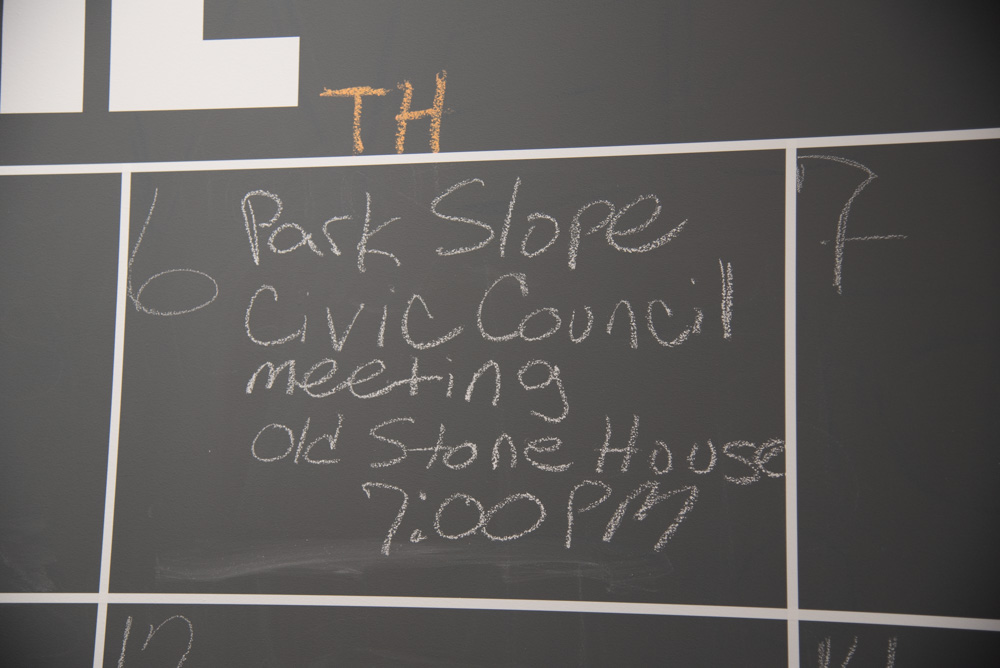 TH
6 Park Slope 7
Civic Council
meeting
Old Stone House
7:00 PM